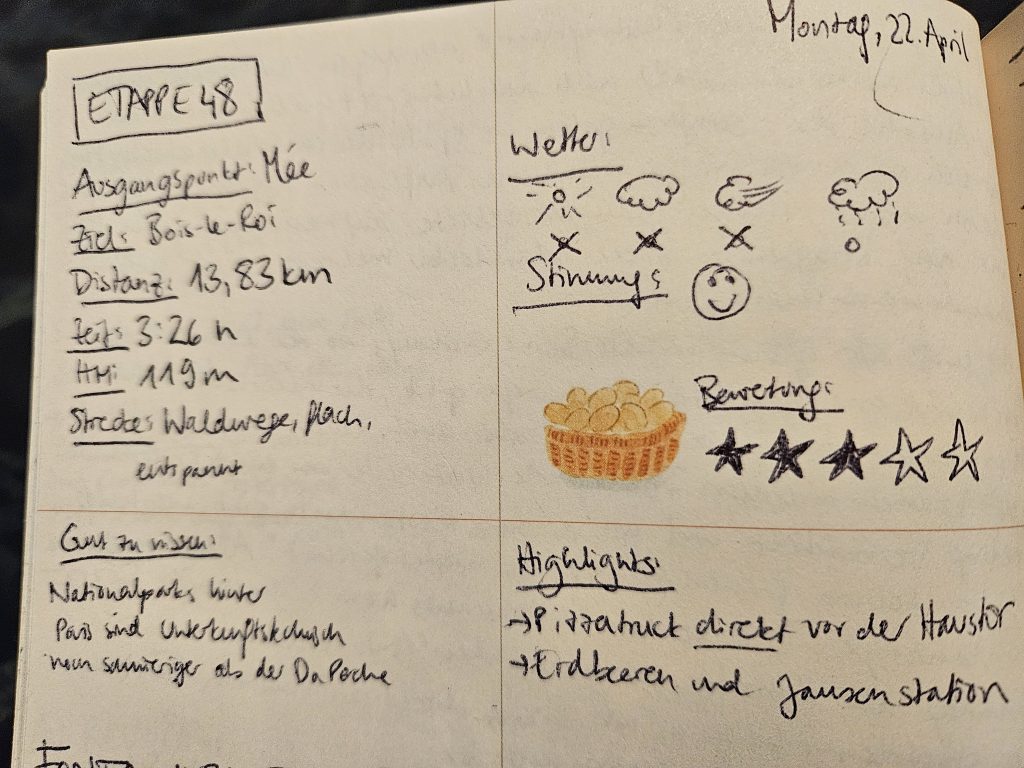 Montag, 22. April
ETAPPE 48
Ausgangspunkt: Mée
Ziel: Bois-le-Roi
Distanz: 13,83 km
Zeit: 3:26 h
HM: 119 m
Strecke: Waldwege, flach,
entspannt
Wetter:
Stimmung:
Bewertung:
Gut zu wissen:
Nationalparks hinter
Paris sind Unterkunftstechnisch
noch schwieriger als der
Highlights:
→ Pizzatruck direkt vor der Haustür
→ Erdbeeren und Jausenstation